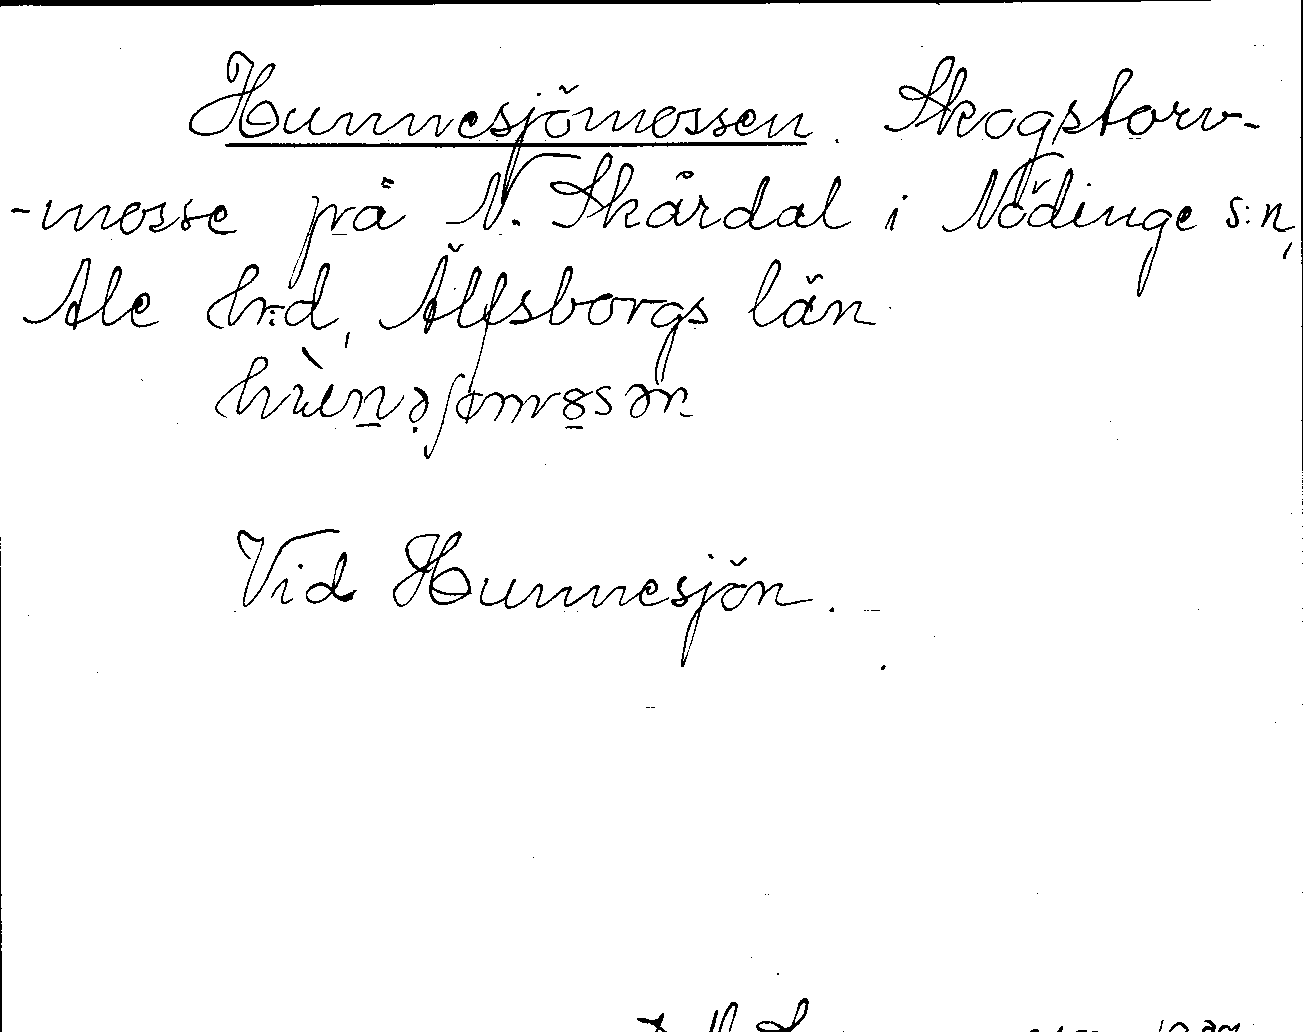 Hunnesjömossen. Skogstorv-
-mosse på N. Skårdal i Nödinge s:n,
Ale hrd, Älfsborgs län
Vid Hunnesjön.